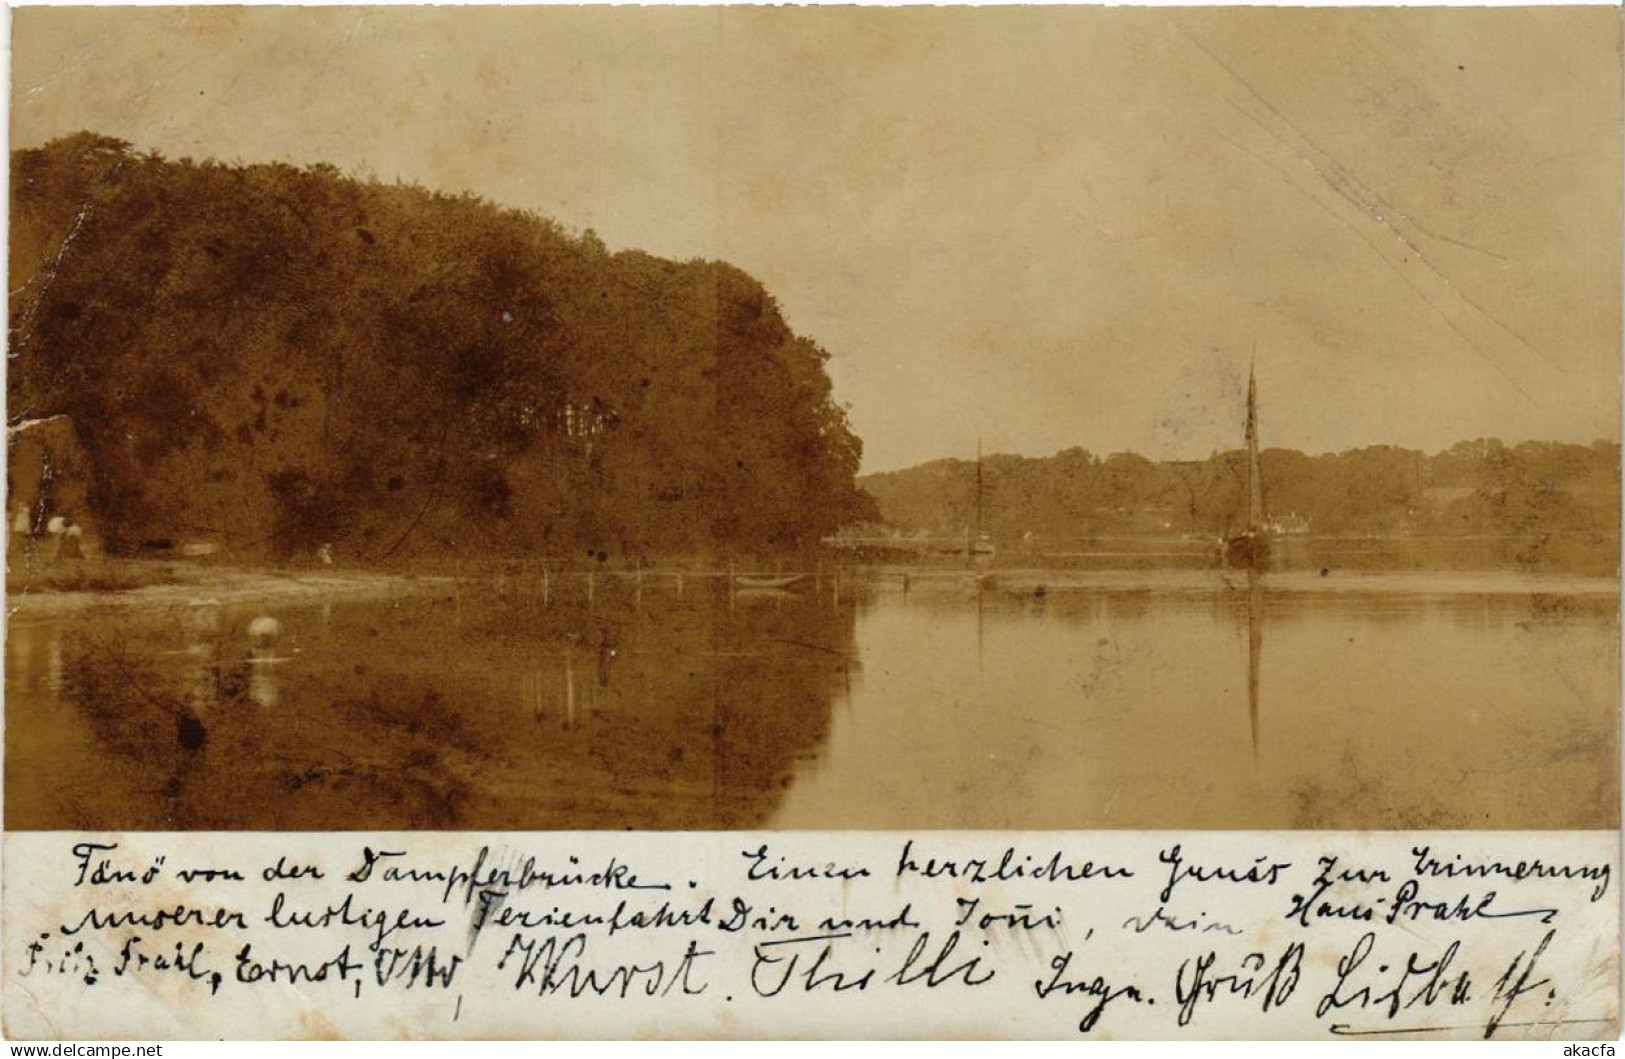 Fänö von der Dampferbrücke. Einen herzlichen Gruss zur Erinnerung
unserer lustigen Ferienfahrt Dir und Toni, Dein Hans Prahl,
Fritz Prahl, Ernst, Otto, Wurst. Thilli Gruß
akacfa